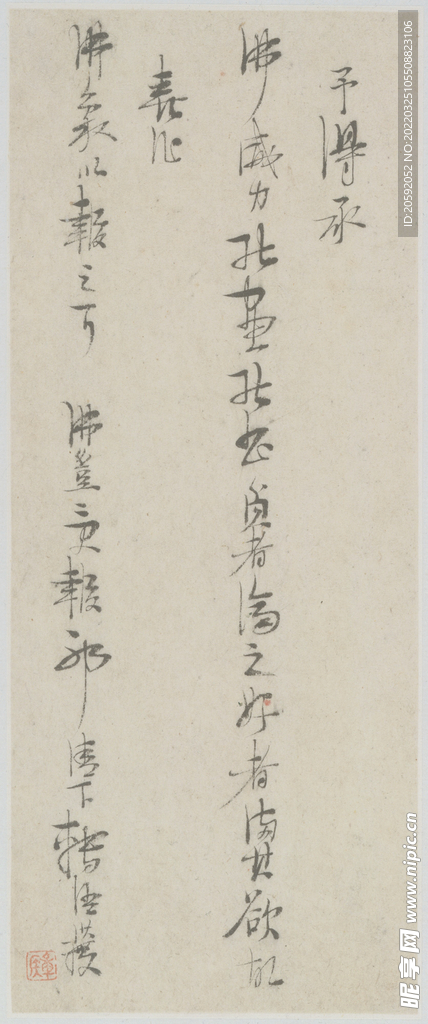 予得承
佛威力能畫能書貧者濟之好者滿其欲故
喜作
佛象以報之耳 佛豈受報耶 請下轉語
ID:20592052 NO:20220325105508823106
昵享网 www.nipic.cn